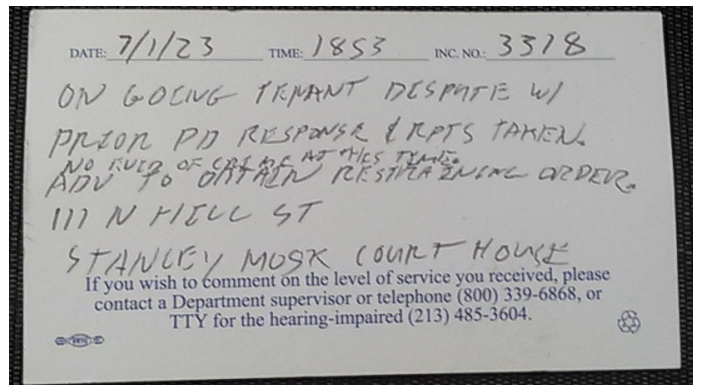 DATE: 7/1/23 TIME: 1853 INC. NO.: 3318
ON GOING TENANT DISPUTE W/
PRIOR PD RESPONSE & RPTS TAKEN.
NO EVID OF CRIME AT THIS TIME.
ADV TO OBTAIN RESTRAINING ORDER.
111 N HILL ST
STANLEY MOSK COURT HOUSE
If you wish to comment on the level of service you received, please
contact a Department supervisor or telephone (800) 339-6868, or
TTY for the hearing-impaired (213) 485-3604.